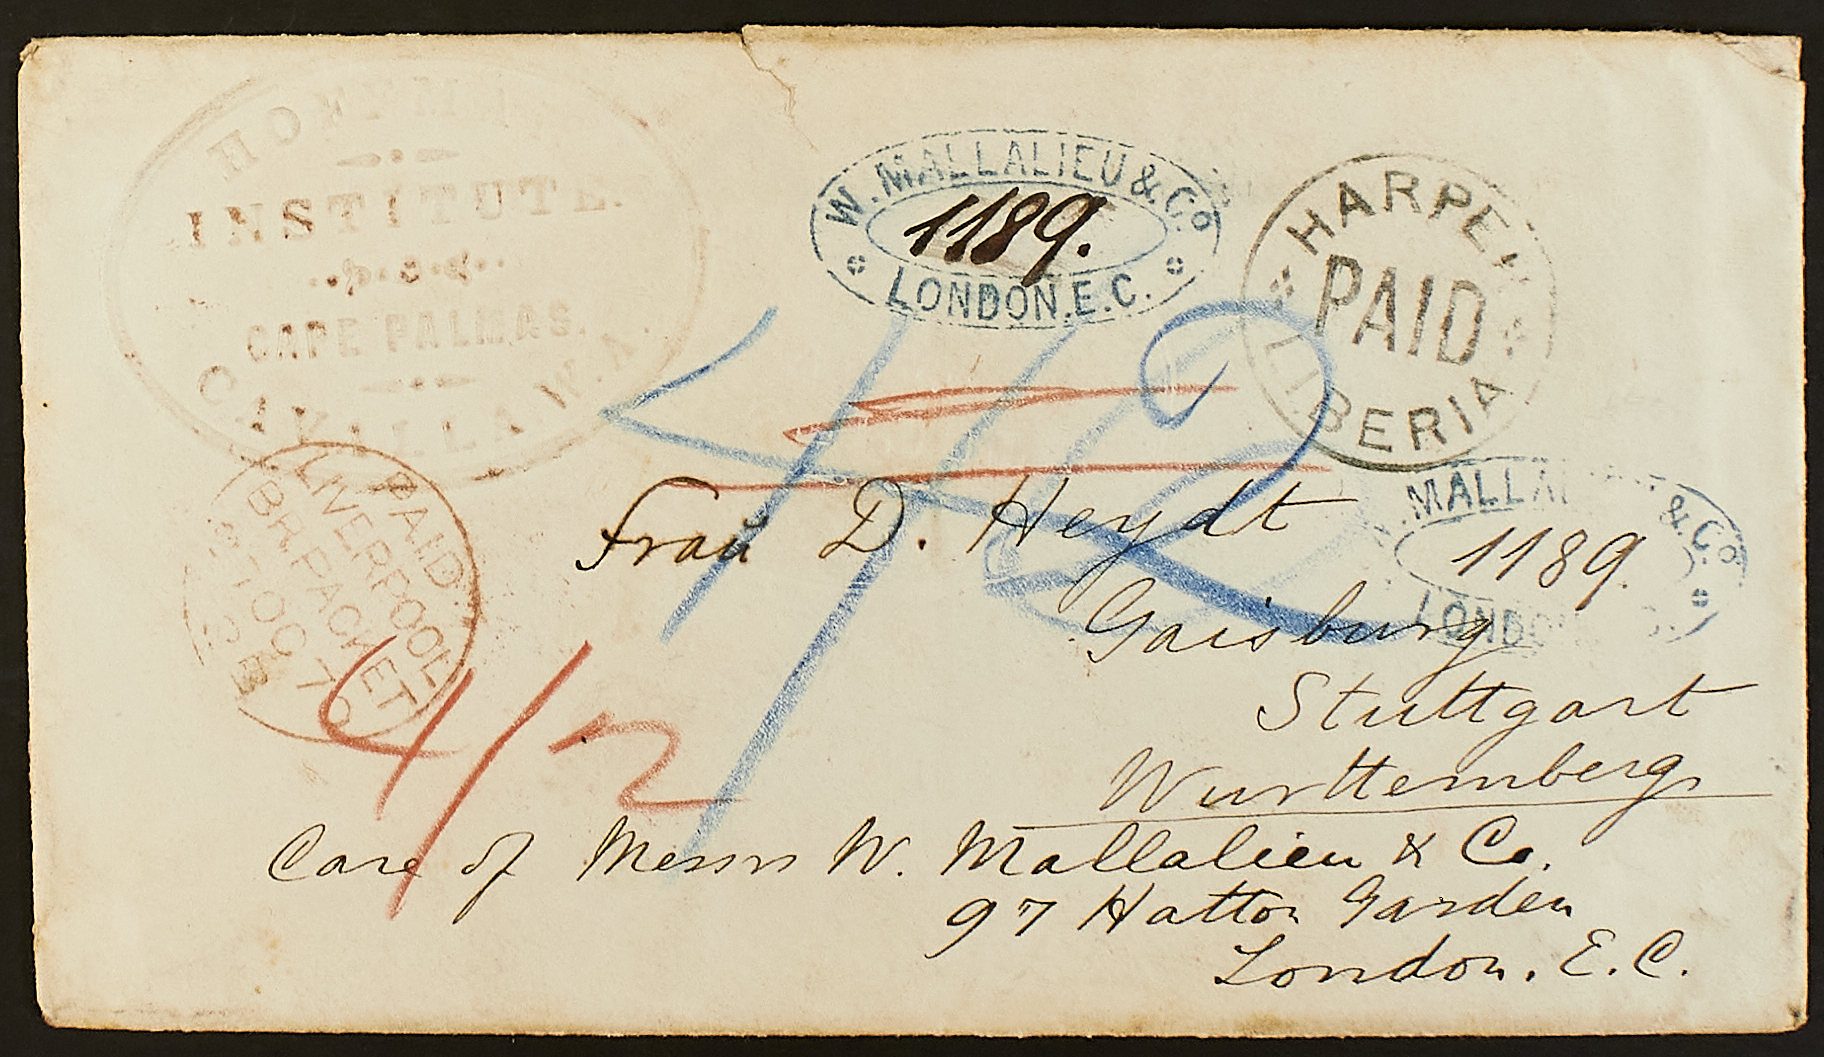 HOFFM
INSTITUTE.
CAPE PALMAS.
CAVALLA W.A.
W. MALLALIEU & Co
1189.
LONDON. E.C.
HARPER
PAID
LIBERIA
PAID
LIVERPOOL
BR. PACKET
27 OC 70
MALLAL & Co
1189.
LONDO
Frau D. Heydt
Gaisburg
Stuttgart
Wurttemberg
Care of Messrs W. Mallalieu & Co.
97 Hatton Garden
London. E.C.